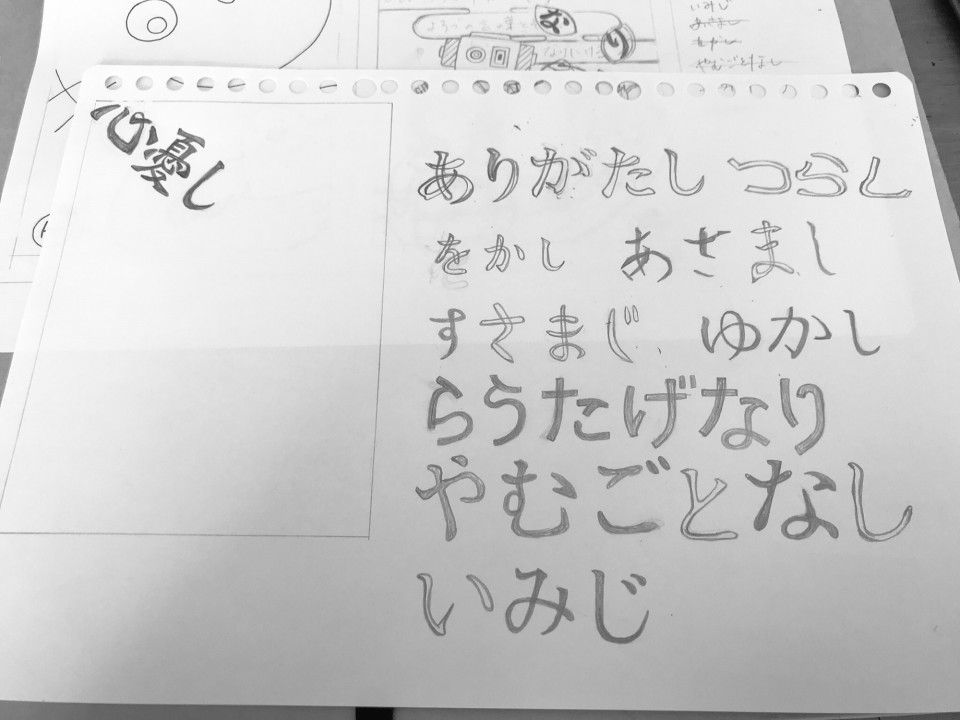 いみじ
あさまし
をかし
やむごとなし
なり
心憂し
ありがたし つらし
をかし あさまし
すさまじ ゆかし
らうたげなり
やむごとなし
いみじ